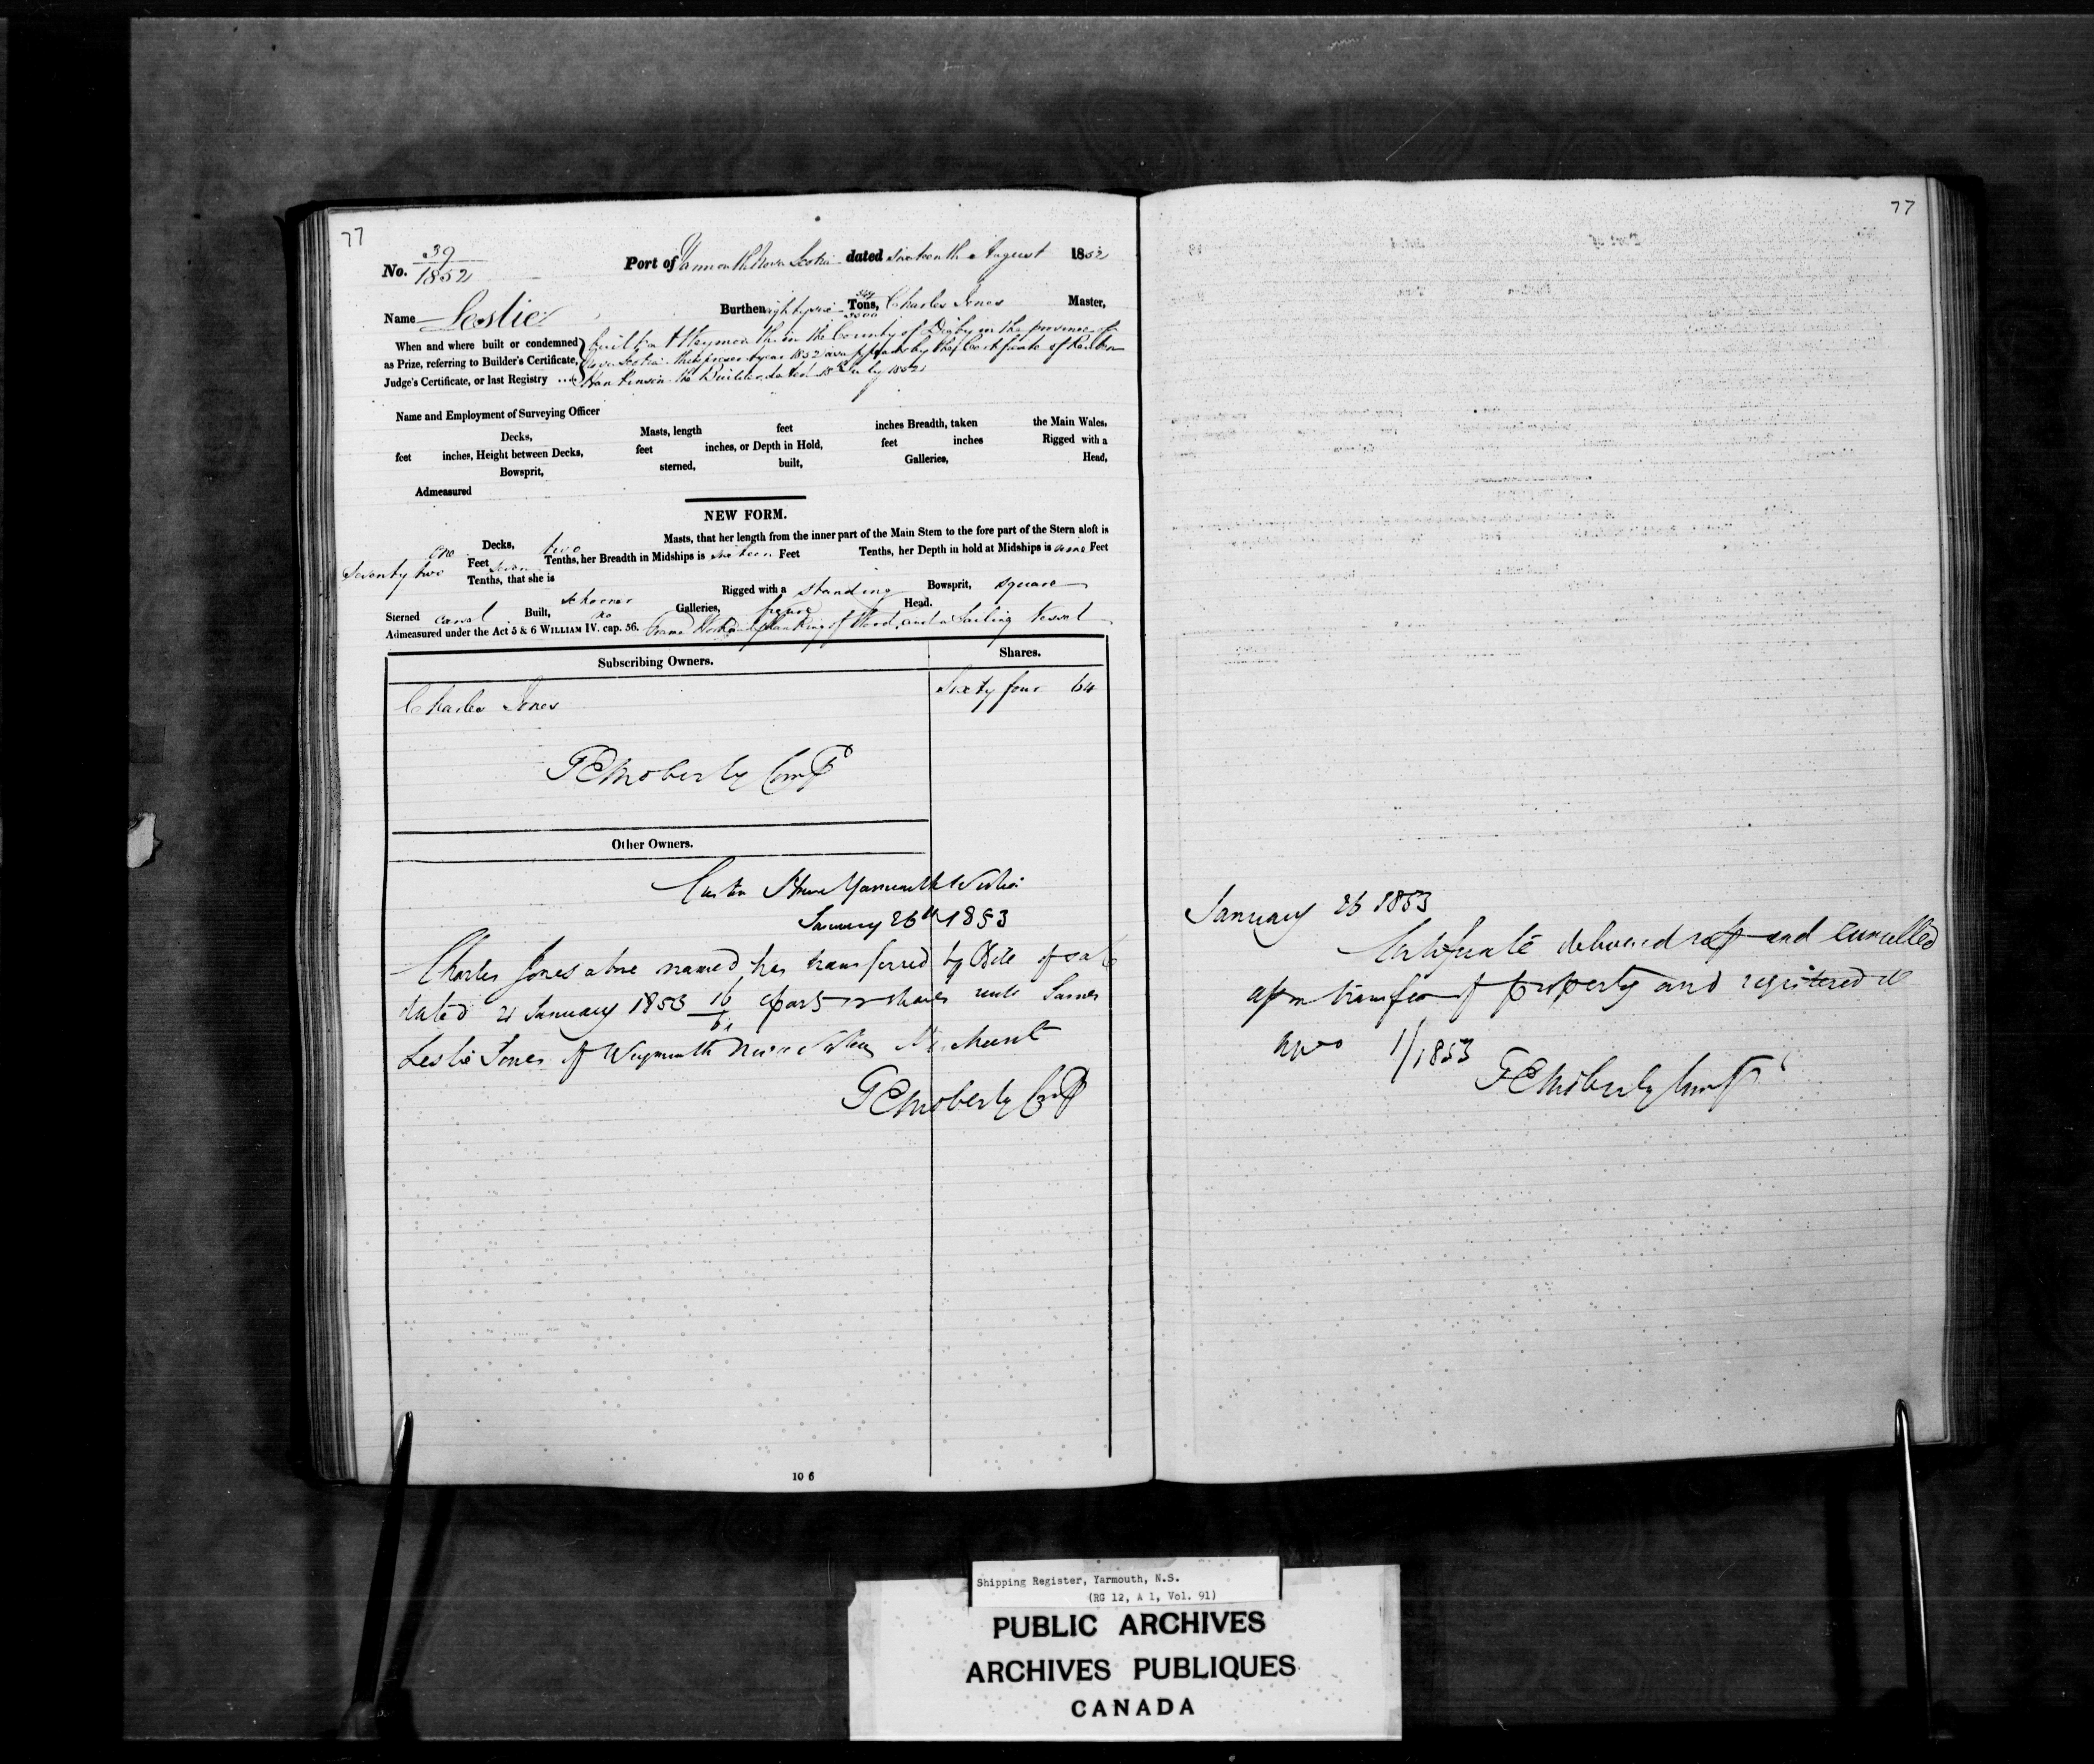 77
No. 39/1852
Port of Yarmouth Nova Scotia dated Sixteenth August 1852
Name Leslie
Burthen eighty six Tons, 3500 Charles Jones Master,
When and where built or condemned as Prize, referring to Builder's Certificate, Judge's Certificate, or last Registry ...
built at Weymouth in the County of Digby in the province of
Nova Scotia this present year 1852 as appears by the Certificate of Reuben
Hankinson the Builder dated 15th July 1852
Name and Employment of Surveying Officer
Decks, Masts, length feet inches Breadth, taken the Main Wales,
feet inches, Height between Decks, feet inches, or Depth in Hold, feet inches Rigged with a
Bowsprit, sterned, built, Galleries, Head,
Admeasured
NEW FORM.
one Decks, two Masts, that her length from the inner part of the Main Stem to the fore part of the Stern aloft is
Seventy two Feet seven Tenths, her Breadth in Midships is nineteen Feet Tenths, her Depth in hold at Midships is nine Feet
Tenths, that she is schooner Rigged with a standing Bowsprit, square
Sterned carvel Built, no Galleries, figure Head.
Admeasured under the Act 5 & 6 WILLIAM IV. cap. 56. Frame Work and planking of Wood, and a Sailing Vessel
Subscribing Owners. Shares.
Charles Jones Sixty four 64
Moberly Compt
Other Owners.
Custom House Yarmouth N Scotia
January 26th 1853
Charles Jones above named, has transferred by Bill of sale
dated 21 January 1853 16/64 parts or shares unto James
Leslie Jones of Weymouth Nova Scotia Merchant
Moberly Compt
10 6
77
January 26 1853
Certificate delivered up and cancelled
upon transfer of property and registered de
novo 1/1853
Moberly Compt
Shipping Register, Yarmouth, N.S.
(RG 12, A 1, Vol. 91)
PUBLIC ARCHIVES
ARCHIVES PUBLIQUES
CANADA